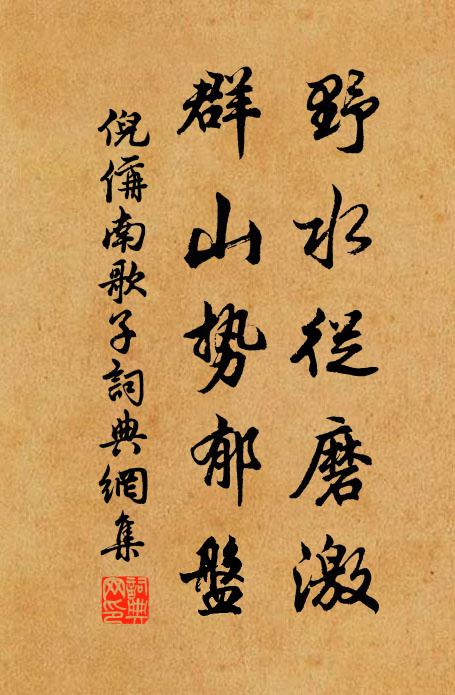 野水從磨激
群山勢郁盤
倪偁南歌子詞典網集
詞典網印